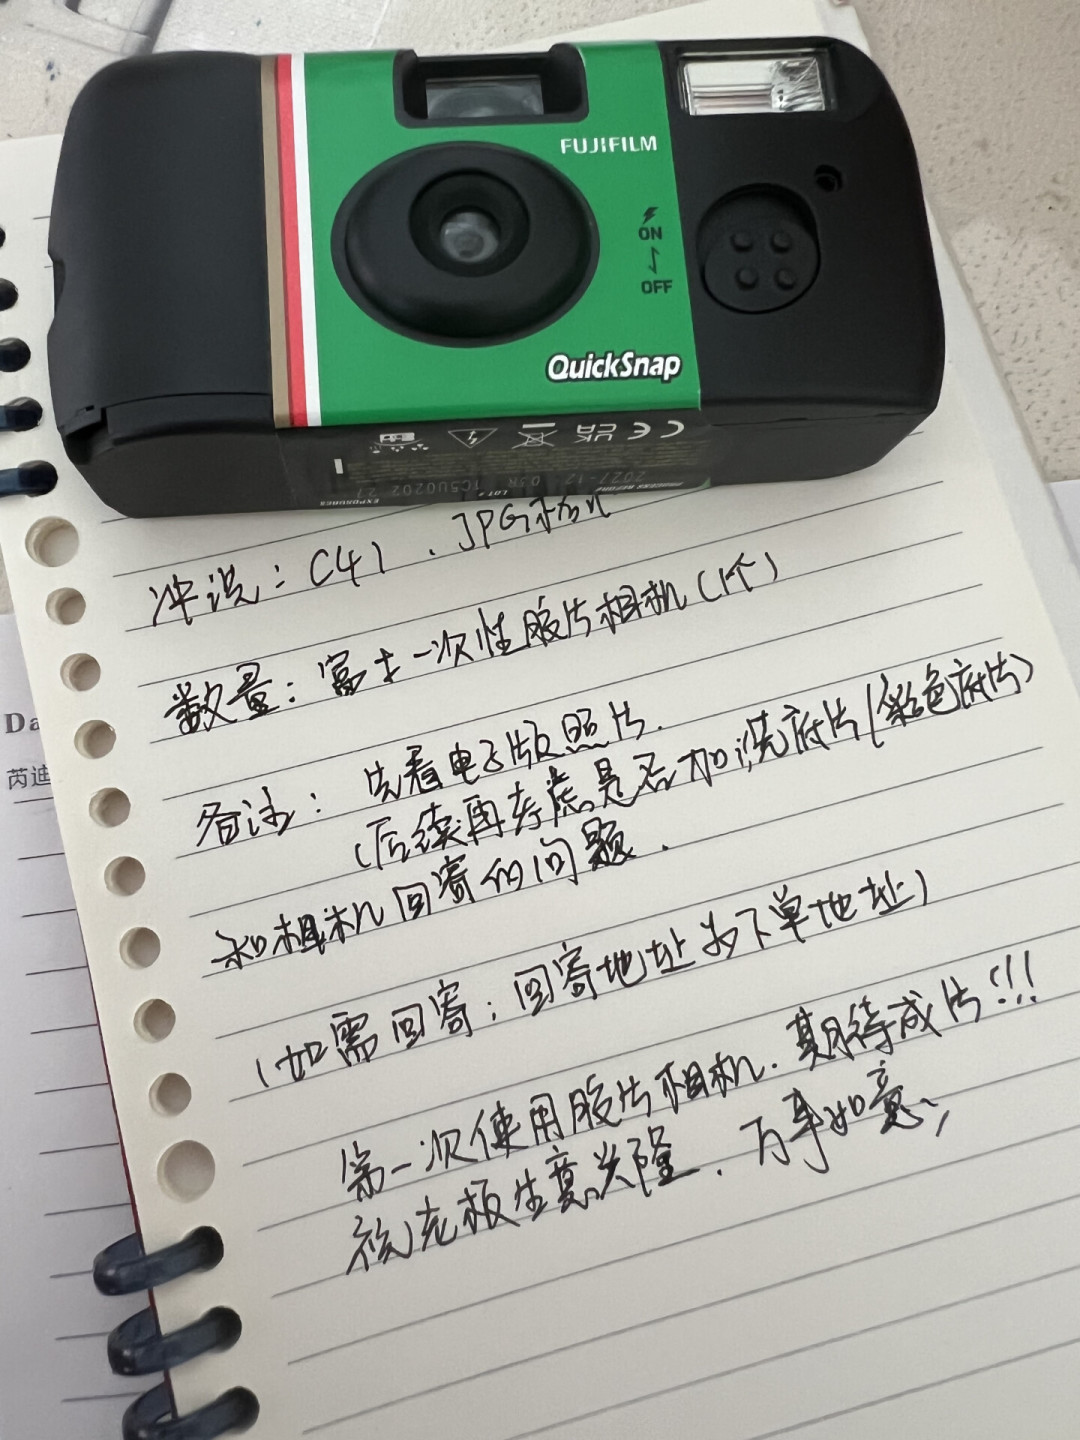 FUJIFILM
ON
OFF
QuickSnap
EXPOSURES 27
LOT#
PROCESS BEFORE 2027-12
冲洗：C41 . JPG格式
数量：富士一次性胶片相机（1个）
备注：先看电子版照片.
（后续再考虑是否加洗底片/彩色底片）
和相机回寄的问题.
（如需回寄：回寄地址为下单地址）
第一次使用胶片相机. 期待成片!!!
祝老板生意兴隆. 万事如意~
Da
芮迪